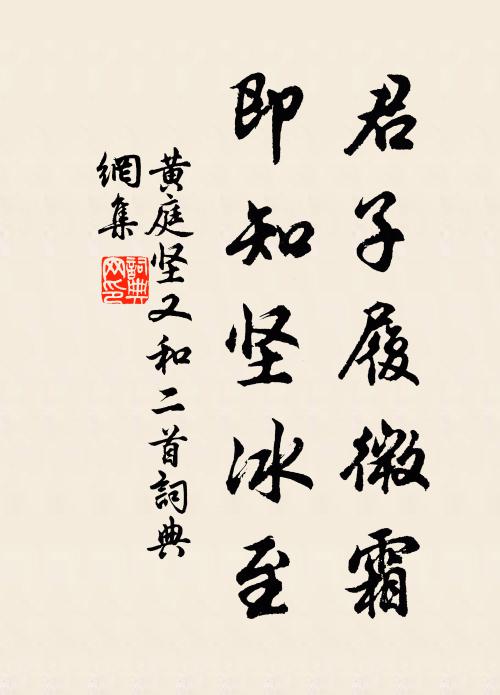 君子履微霜
即知坚冰至
黄庭坚又和二首詞典
網集
詞典
网印